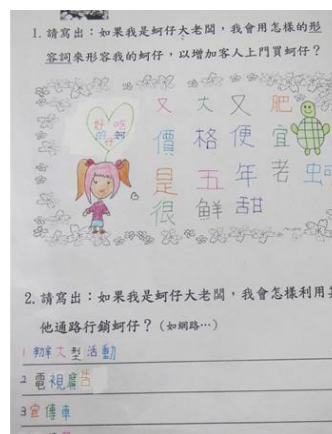 1. 請寫出：如果我是蚵仔大老闆，我會用怎樣的形
容詞來形容我的蚵仔，以增加客人上門買蚵仔？
好吃
的蚵
仔
又大又肥
價格便宜
是五年老虫
很鮮甜
2. 請寫出：如果我是蚵仔大老闆，我會怎樣利用其
他通路行銷蚵仔？（如網路…）
1 辦大型活動
2 電視廣告
3 宣傳車